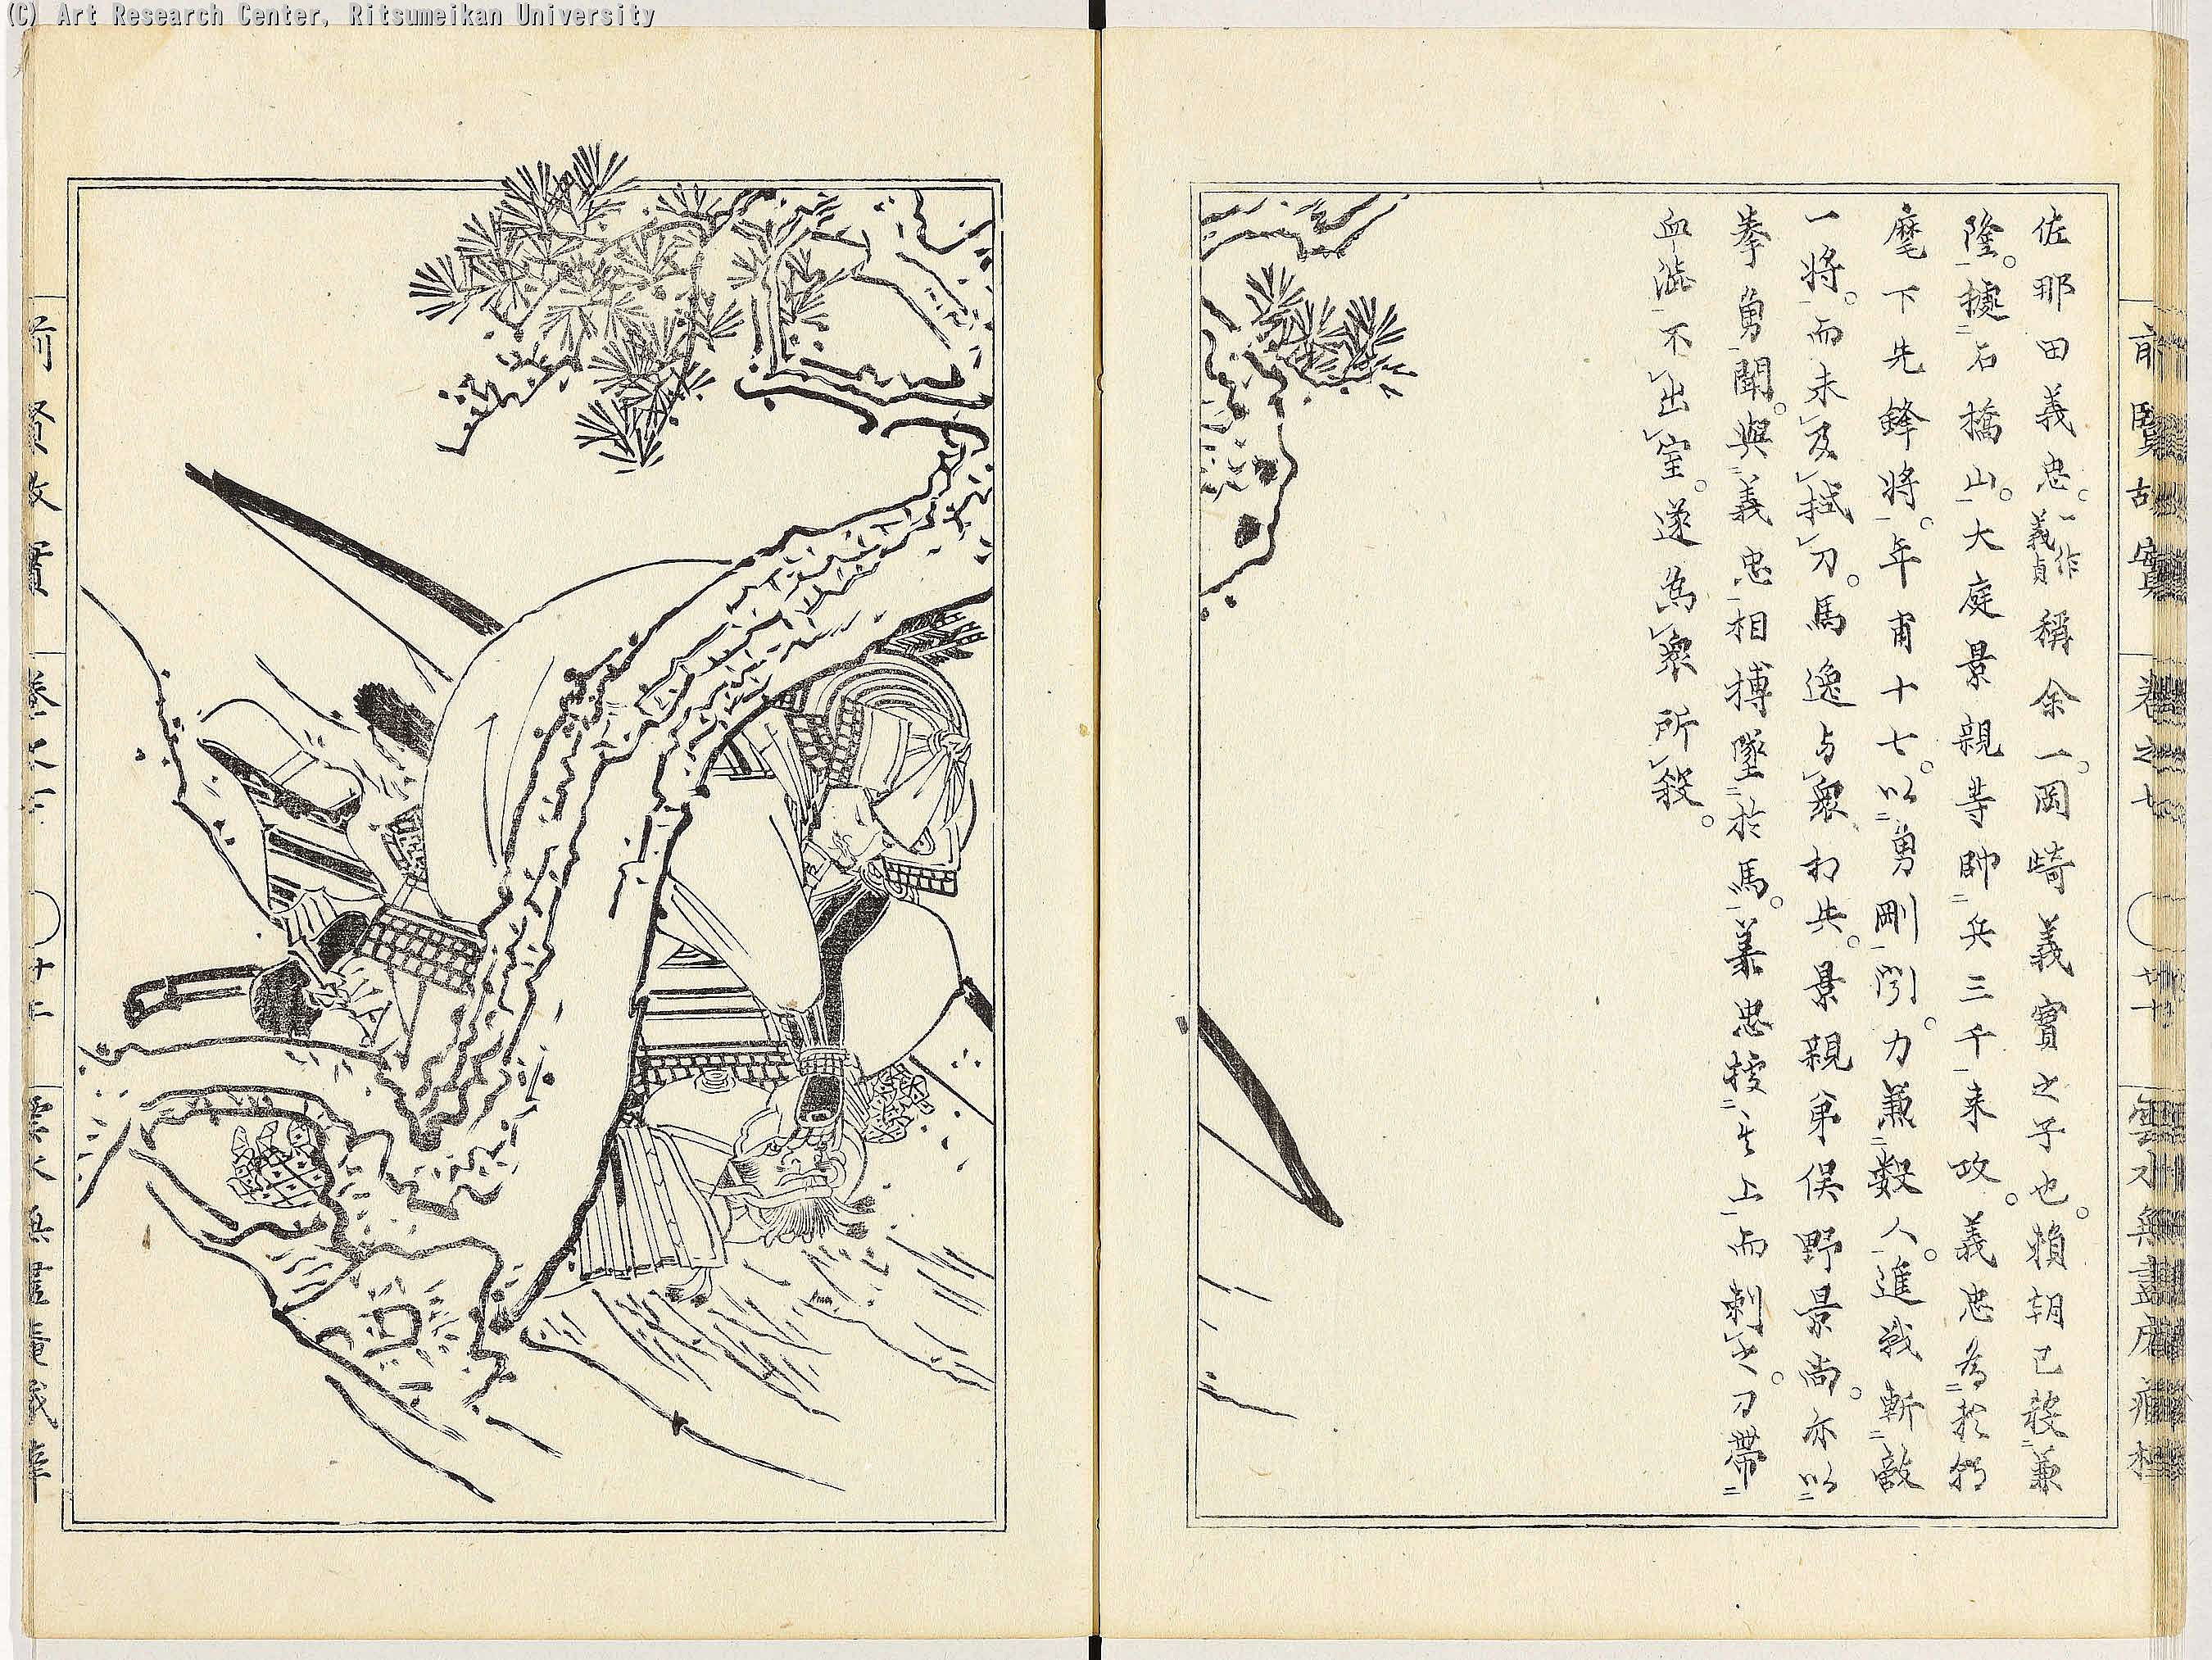 (C) Art Research Center, Ritsumeikan University
前賢故實 卷之七 ○廿十 雲水無盡庵
佐那田義忠。一作義貞稱余一。岡崎義實之子也。賴朝已殺兼
隆。據石橋山。大庭景親等帥兵三千來攻。義忠為於
麾下先鋒將。年甫十七。以勇剛聞。力兼數人。進戰斬敵
一將。而未及拭刀。馬逸与衆相失。景親弟俣野景尚。亦以
拳勇聞。與義忠相搏墜於馬。義忠據其上而刺之。刀帶
血澁不出室。遂為衆所殺。
前賢故實